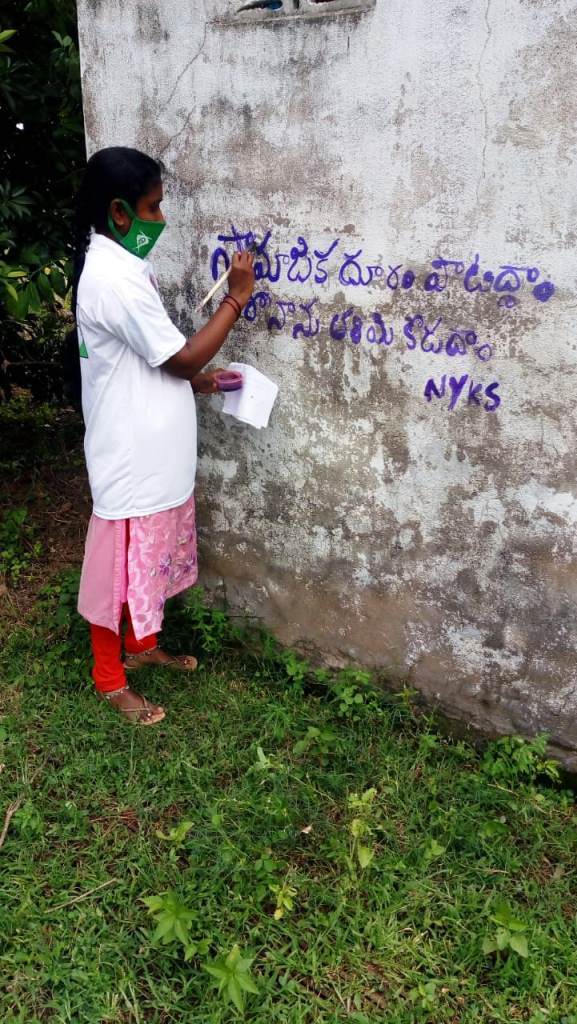 సామాజిక దూరం పాటిద్దాం
కరోనాను తరిమి కొడుదాం
NYKS